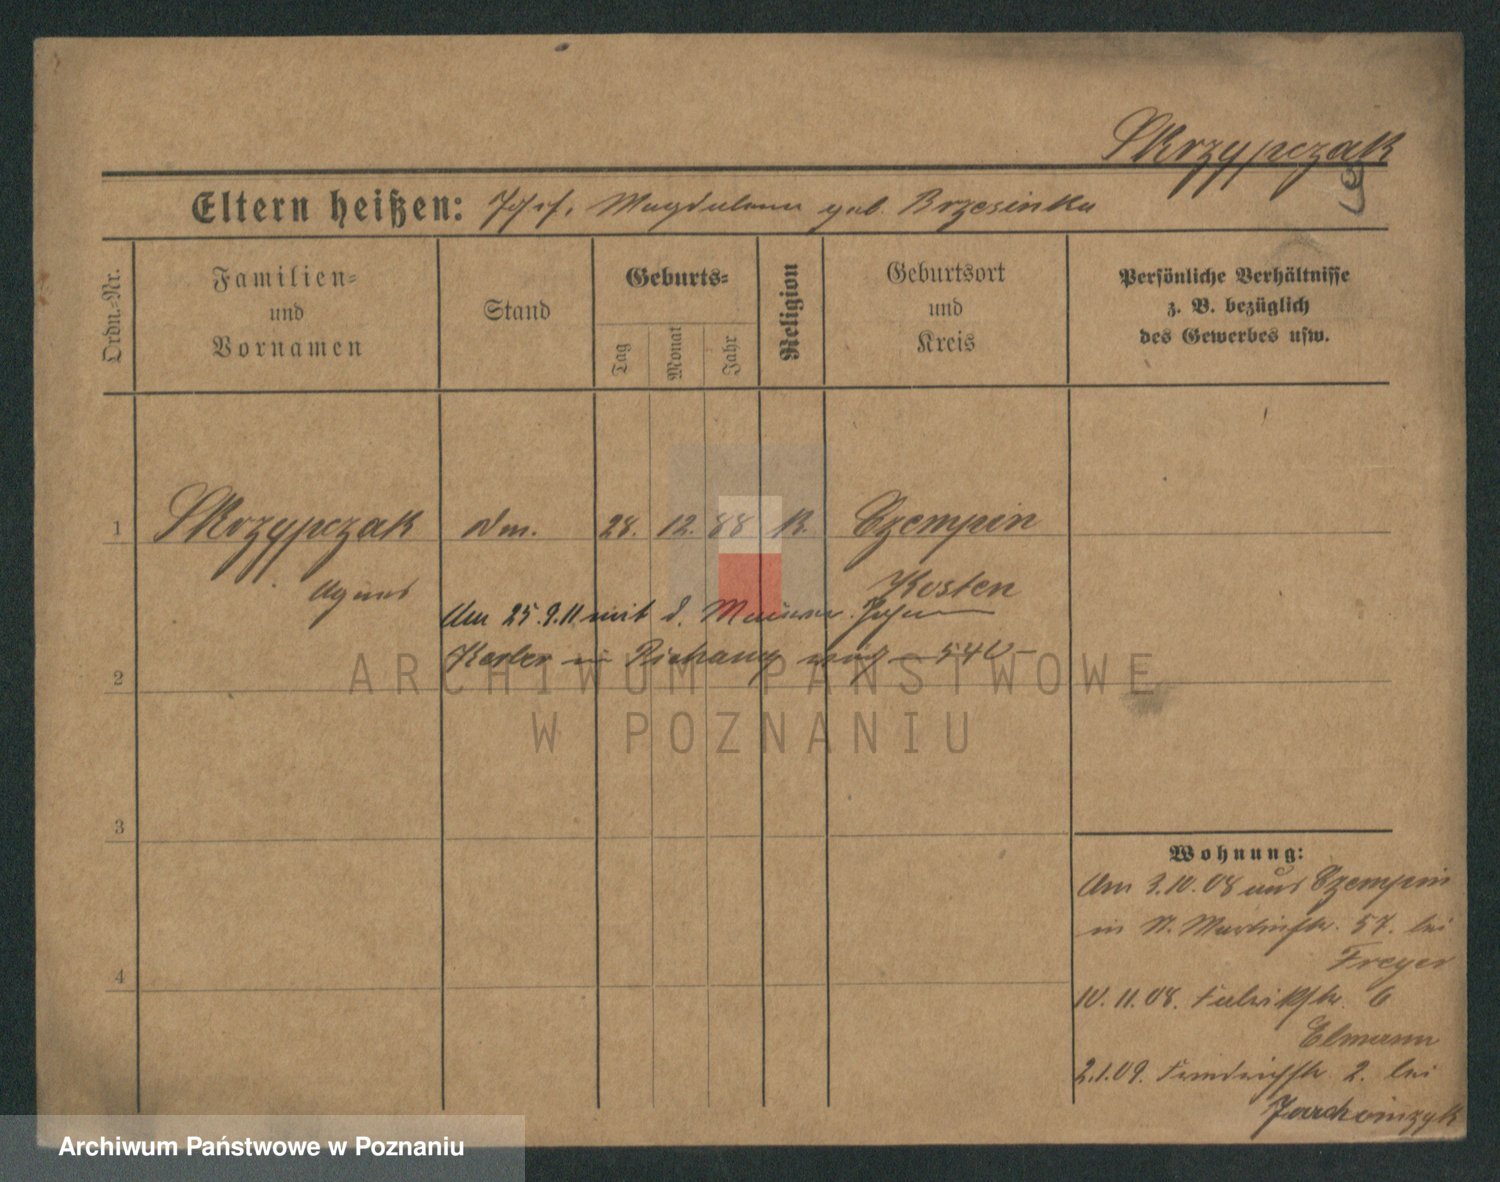 Skrzypczak
9
Eltern heißen: Josef, Magdalena geb. Brzesinka
Ordn.-Nr.
Familien-
und
Vornamen
Stand
Geburts-
Tag
Monat
Jahr
Religion
Geburtsort
und
Kreis
Persönliche Verhältnisse
z. B. bezüglich
des Gewerbes usw.
1
Skrzypczak
28. 12. 88 K.
Czempin
Agnes
Kosten
Am 25.9.11 mit d. Maurer
in 540
2
ARCHIWUM PAŃSTWOWE
W POZNANIU
3
Wohnung:
Am 3.10.08 aus Czempin
in St. Martinstr. 57. bei
Freyer
4
10.11.08. Fabrikstr. 6
Elmann
2.1.09. Friedrichstr. 2. bei
Archiwum Państwowe w Poznaniu